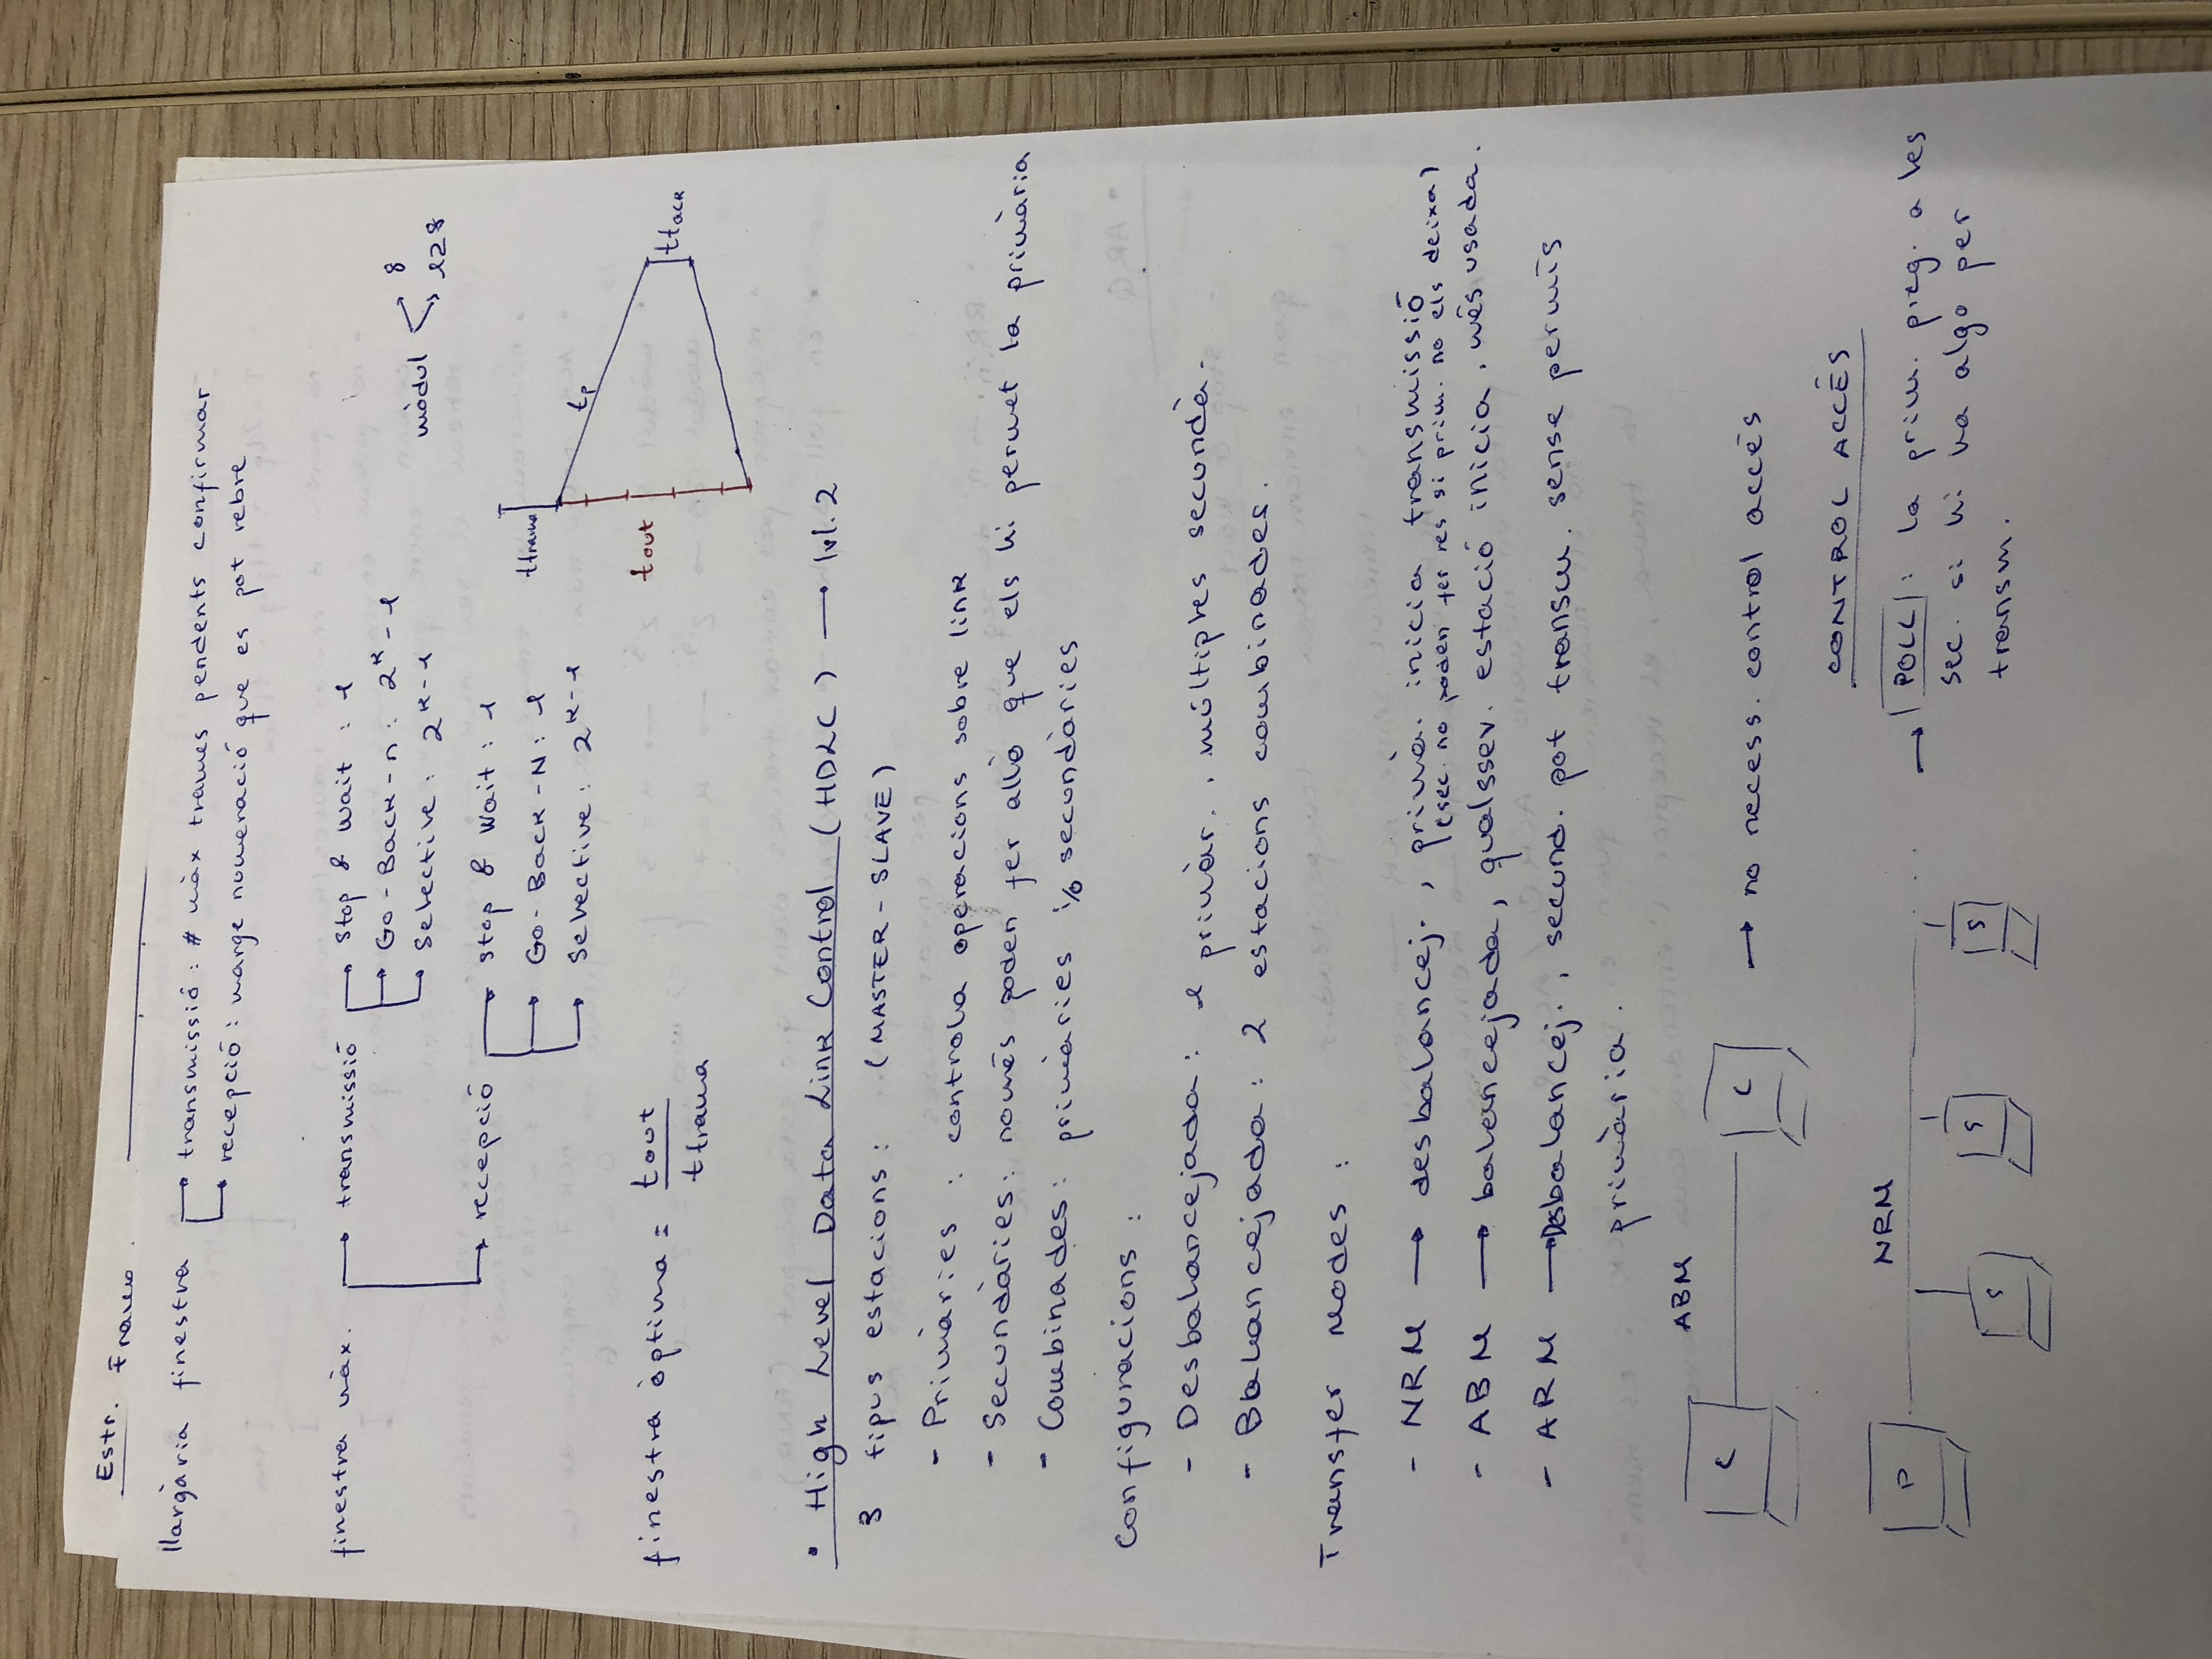 Estr. Frame.
llargària finestra → transmissió : # màx trames pendents confirmar
→ recepció : marge numeració que es pot rebre
finestra màx. → transmissió → Stop & Wait : 1
→ Go-Back-n : 2^K - 1
→ Selective : 2^K-1
mòdul 8
128
→ recepció → Stop & Wait : 1
→ Go-Back-N : 1
→ Selective : 2^K-1
ttrama
tp
tout
ttack
finestra òptima = tout / ttrama
• High Level Data Link Control (HDLC) → lvl. 2
3 tipus estacions : (MASTER - SLAVE)
- Primàries : controla operacions sobre link
- Secundàries : només poden fer allò que els hi permet la primària
- Combinades : primàries i/o secundàries
Configuracions :
- Desbalancejada : 1 primàr. , múltiples secundà.
- Balancejada : 2 estacions combinades.
Transfer Modes :
- NRM → desbalancej. , primà. inicia transmissió
(sec. no poden fer res si prim. no els deixa)
- ABM → balancejada, qualssev. estació inicia , més usada.
- ARM → Desbalancej. , secund. pot transm. sense permís
primària.
ABM
C C → no necess. control accés
CONTROL ACCÉS
NRM
P S S S ... → POLL : la prim. preg. a les
sec. si hi ha algo per
transm.